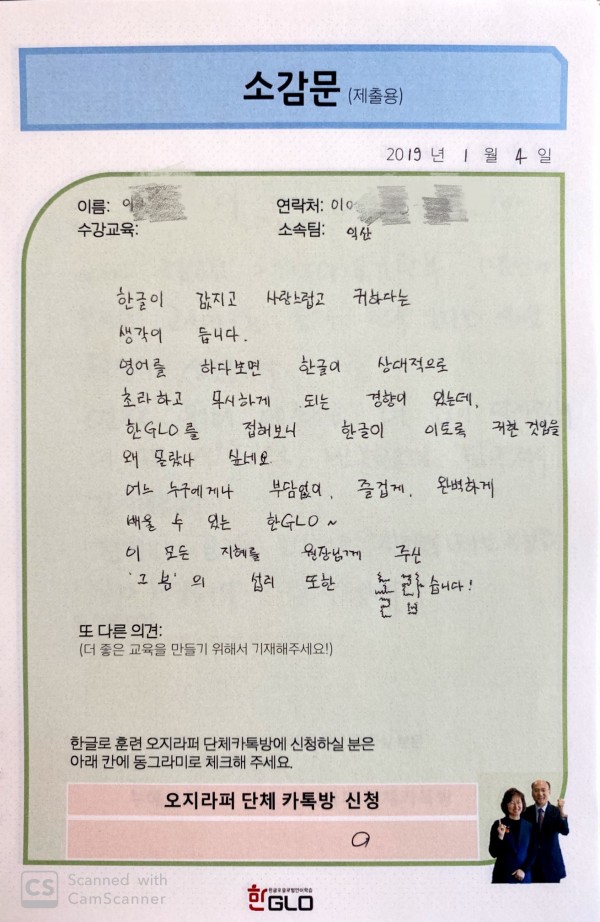 소감문 (제출용)
2019 년 1 월 4 일
이름: 이
연락처: 010
수강교육:
소속팀: 익산
한글이 값지고 사랑스럽고 귀하다는
생각이 듭니다.
영어를 하다보면 한글이 상대적으로
초라하고 무시하게 되는 경향이 있는데,
한GLO를 접해보니 한글이 이토록 귀한 것임을
왜 몰랐나 싶네요.
어느 누구에게나 부담없이, 즐겁게, 완벽하게
배울 수 있는 한GLO~
이 모든 지혜를 원장님께 주신
'그 분'의 섭리 또한 습니다!
또 다른 의견:
(더 좋은 교육을 만들기 위해서 기재해주세요!)
한글로 훈련 오지라퍼 단체카톡방에 신청하실 분은
아래 칸에 동그라미로 체크해 주세요.
오지라퍼 단체 카톡방 신청
CS Scanned with
CamScanner
한GLO